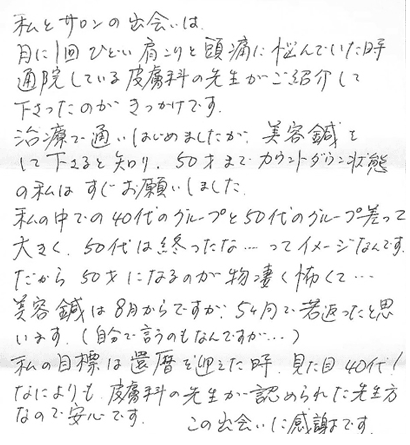 私とサロンの出会いは、
月に1回ひどい肩こりと頭痛に悩んでいた時
通院している皮膚科の先生がご紹介して
下さったのがきっかけです。
治療で通いはじめましたが、美容鍼を
して下さると知り、50才までカウントダウン状態
の私はすぐお願いしました。
私の中での40代のグループと50代のグループ差って
大きく、50代は終ったな…ってイメージなんです。
だから50才になるのが物凄く怖くて…
美容鍼は8月からですが、5ヶ月で若返ったと思
います。(自分で言うのもなんですが…)
私の目標は還暦を迎えた時、見た目40代!
なによりも、皮膚科の先生が認められた先生方
なので安心です。
この出会いに感謝です。